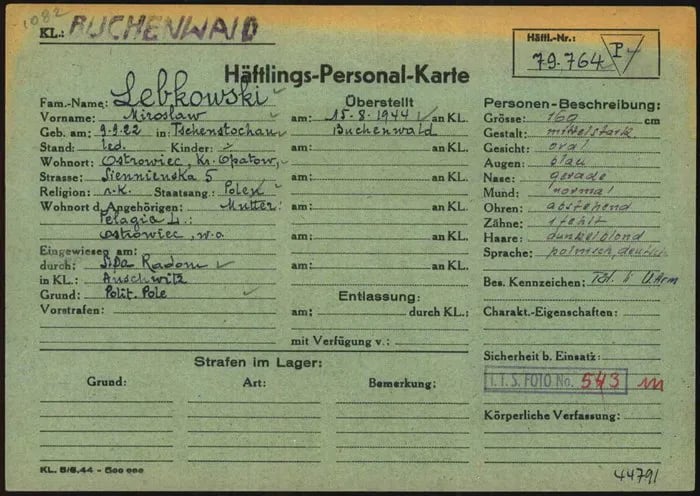 1082
KL.: BUCHENWALD
Häftl.-Nr.:
79.764 P
Häftlings-Personal-Karte
Fam.-Name: Lebkowski
Vorname: Miroslaw
Geb. am: 9.9.22 in: Tschenstochau
Stand: led. Kinder:
Wohnort: Ostrowiec, Kr. Opatow,
Strasse: Siennienska 5
Religion: r.k. Staatsang.: Polen
Wohnort d. Angehörigen: Mutter:
Pelagia L.:
Ostrowiec, w.o
Eingewiesen am:
durch: Sipo Radom
in KL.: Auschwitz
Grund: Polit. Pole
Vorstrafen:
Überstellt
am: 15.8.1944 an KL.
Buchenwald
am: an KL.
am: an KL.
am: an KL.
am: an KL.
am: an KL.
Entlassung:
am: durch KL.:
mit Verfügung v.:
Personen-Beschreibung:
Grösse: 169 cm
Gestalt: mittelstark
Gesicht: oval
Augen: blau
Nase: gerade
Mund: normal
Ohren: abstehend
Zähne: 1 fehlt
Haare: dunkelblond
Sprache: polnisch, deutsch
Bes. Kennzeichen: U Arm
Charakt.-Eigenschaften:
Sicherheit b. Einsatz:
I.T.S. FOTO No. 543
Körperliche Verfassung:
Strafen im Lager:
Grund: Art: Bemerkung:
KL. 5/6.44 - 500 000
44791